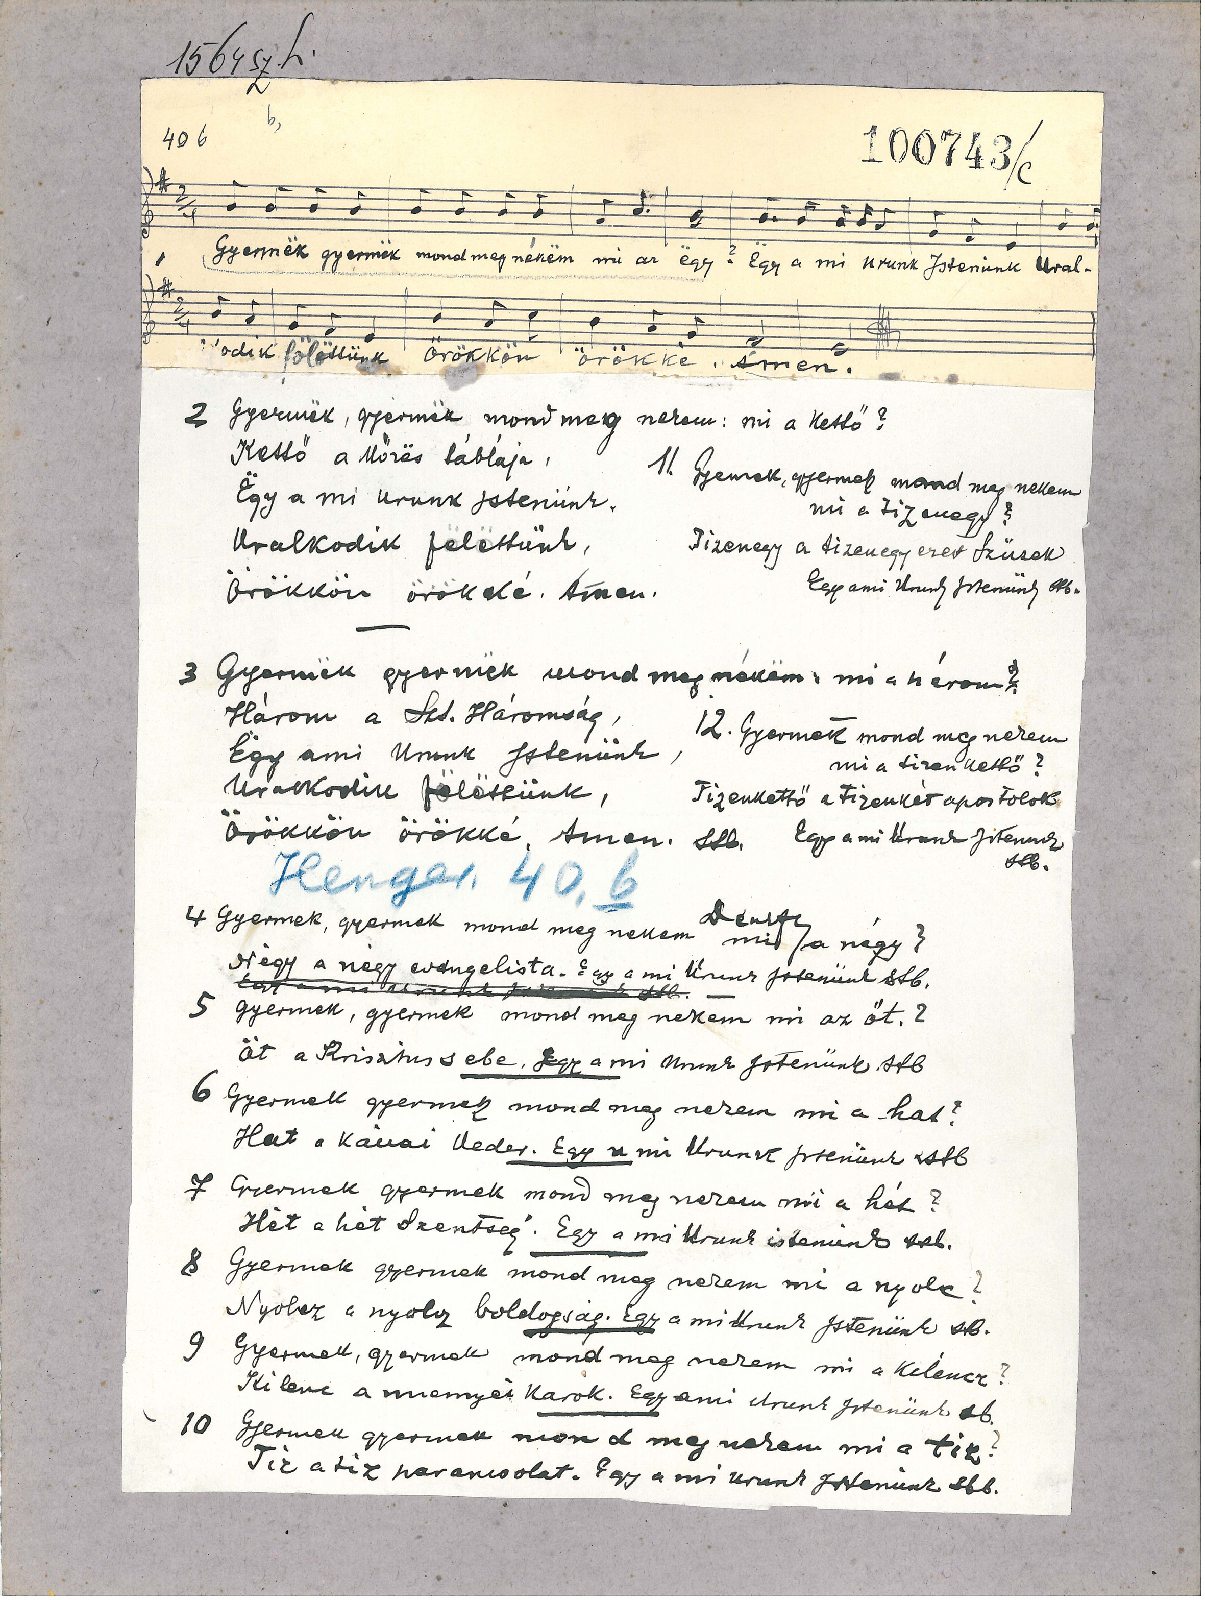 1564 sz. h.
b,
40 b
100743/c
Gyermëk gyermëk mond meg nékëm mi az ëgy? Ëgy a mi Urunk Jstenünk Ural-
odik fölöttünk Örökkön örökké. Ámen.
2 Gyermëk, gyermëk mond meg nekem: mi a kettő?
Kettő a Mózës táblája,
Ëgy a mi Urunk Jstenünk.
Uralkodik fölöttünk,
Örökkön örökké. Ámen.
11. Gyermek, gyermek mond meg nekem
mi a tizenegy?
Tizenegy a tizenegy ezer Szüsek
Egy a mi Urunk Jstenünk stb.
3 Gyermëk gyermëk mond meg nékëm: mi a három?
Három a Szt. Háromság,
Ëgy a mi Urunk Jstenünk,
Uralkodik fölöttünk,
Örökkön örökké. Ámen. stb.
12. Gyermek mond meg nekem
mi a tizenkettő?
Tizenkettő a tizenkét apostolok
Egy a mi Urunk Jstenünk
stb.
Henger. 40. b
4 Gyermek, gyermek mond meg nekem mi a négy?
Négy a négy evangelista. Egy a mi Urunk Jstenünk stb.
Egy a mi Urunk Jstenünk stb.
5 gyermek, gyermek mond meg nekem mi az öt.?
Öt a Krisztus sebe. Egy a mi Urunk Jstenünk stb
6 Gyermek gyermek mond meg nekem mi a hat?
Hat a Kánai Veder. Egy a mi Urunk Jstenünk stb
7 Gyermek gyermek mond meg nekem mi a hét?
Hét a hét Szentség. Egy a mi Urunk istenünk stb.
8 Gyermek gyermek mond meg nekem mi a nyolc?
Nyolcz a nyolcz boldogság. Egy a mi Urunk Jstenünk stb.
9 Gyermek, gyermek mond meg nekem mi a kilencz?
Kilenc a mennyei Karok. Egy a mi Urunk Jstenünk stb.
10 Gyermek gyermek mond meg nekem mi a tiz?
Tiz a tiz parancsolat. Egy a mi Urunk Jstenünk stb.